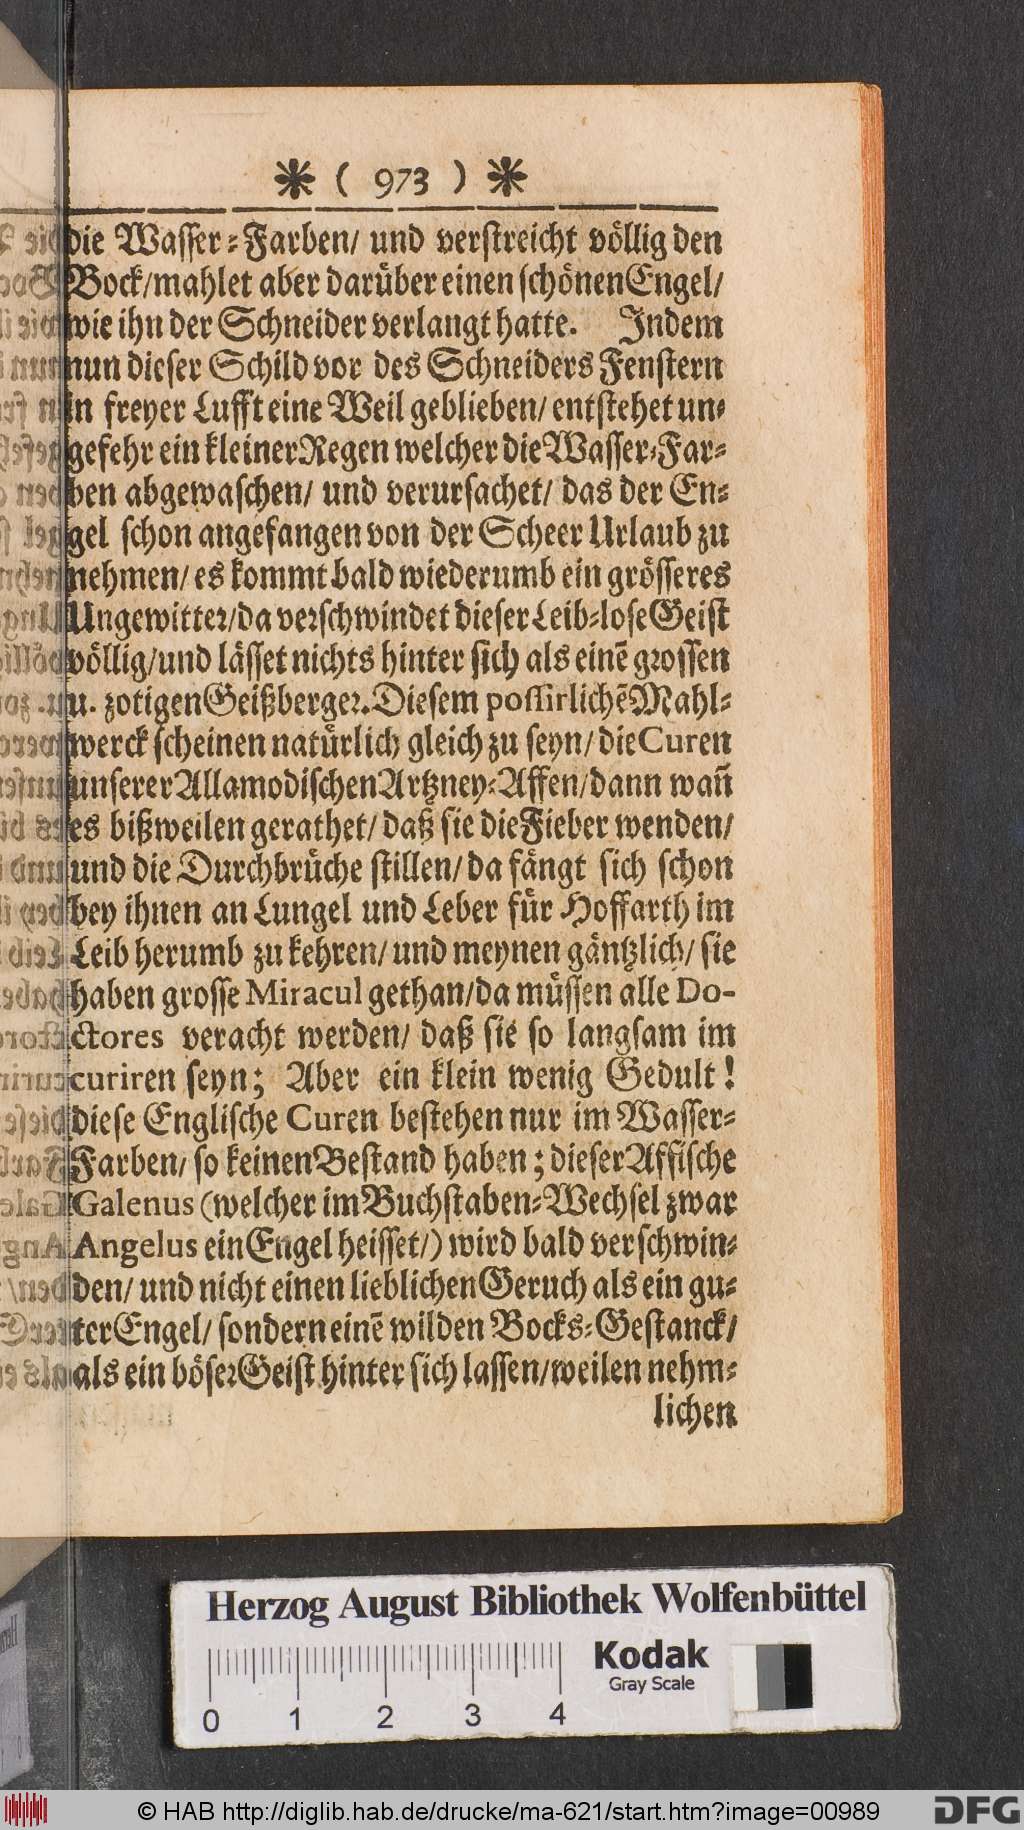 ❋ ( 973 ) ❋
die Wasser-Farben/ und verstreicht völlig den
Bock/mahlet aber darüber einen schönen Engel/
wie ihn der Schneider verlangt hatte. Indem
nun dieser Schild vor des Schneiders Fenstern
in freyer Lufft eine Weil geblieben/ entstehet un-
gefehr ein kleiner Regen welcher die Wasser-Far-
ben abgewaschen/ und verursachet/ das der En-
gel schon angefangen von der Scheer Urlaub zu
nehmen/ es kommt bald wiederumb ein grösseres
Ungewitter/da verschwindet dieser Leib-lose Geist
völlig/und lässet nichts hinter sich als einē grossen
u. zotigen Geißberger. Diesem possirlichē Mahl-
werck scheinen natürlich gleich zu seyn/ die Curen
unserer Allamodischen Artzney-Affen/dann wañ
es bißweilen gerathet/ daß sie die Fieber wenden/
und die Durchbrüche stillen/ da fängt sich schon
bey ihnen an Lungel und Leber für Hoffarth im
Leib herumb zu kehren/ und meynen gäntzlich/ sie
haben grosse Miracul gethan/da müssen alle Do-
ctores veracht werden/ daß sie so langsam im
curiren seyn; Aber ein klein wenig Gedult!
diese Englische Curen bestehen nur im Wasser-
Farben/ so keinen Bestand haben; dieser Affische
Galenus (welcher im Buchstaben-Wechsel zwar
Angelus ein Engel heisset/) wird bald verschwin-
den/ und nicht einen lieblichen Geruch als ein gu-
ter Engel/ sondern einē wilden Bocks-Gestanck/
als ein böser Geist hinter sich lassen/weilen nehm-
lichen
Herzog August Bibliothek Wolfenbüttel
Kodak
Gray Scale
0 1 2 3 4
© HAB http://diglib.hab.de/drucke/ma-621/start.htm?image=00989
DFG